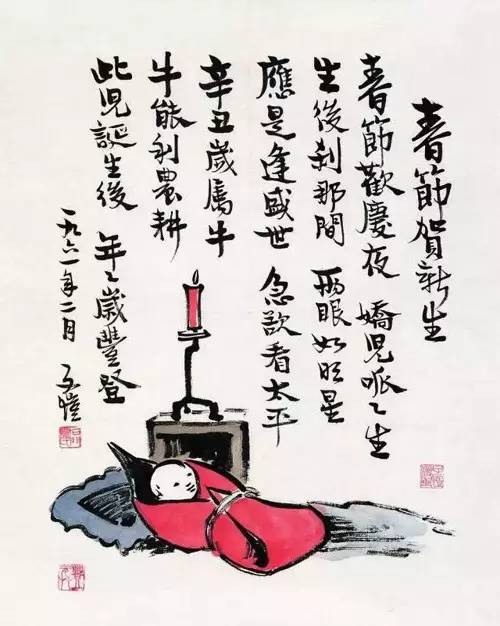 春節賀新生
春節歡慶夜 嬌兒呱々生
生後剎那間 兩眼如明星
應是逢盛世 急欲看太平
辛丑歲屬牛
牛能利農耕
此兒誕生後 年々歲豐登
一九六一年二月 子愷